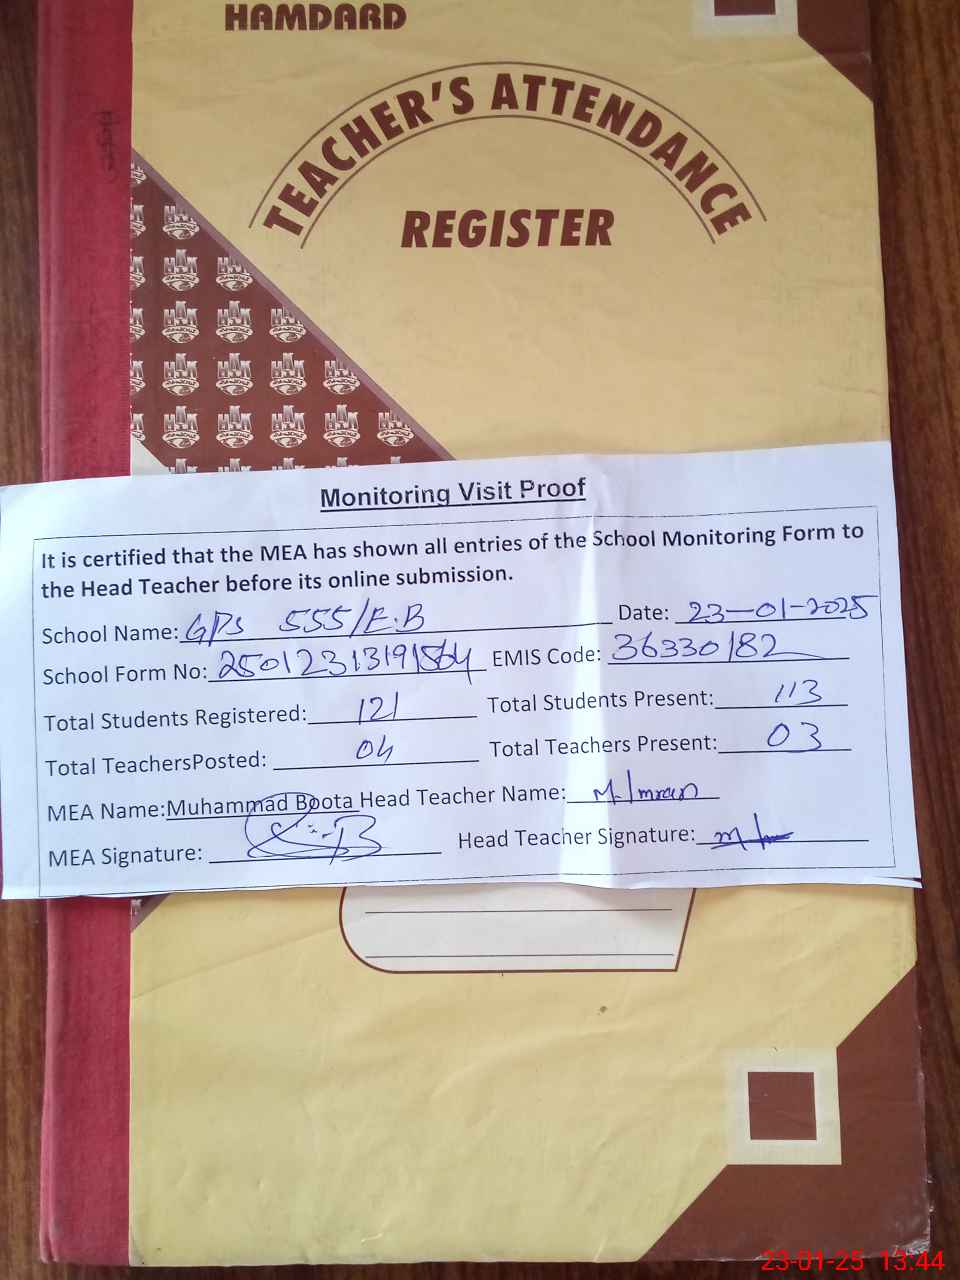 HAMDARD
TEACHER'S ATTENDANCE
REGISTER
Monitoring Visit Proof
It is certified that the MEA has shown all entries of the School Monitoring Form to
the Head Teacher before its online submission.
School Name: GPS 555/E.B Date: 23-01-2025
School Form No: EMIS Code: 36330182
Total Students Registered: 121 Total Students Present: 113
Total TeachersPosted: 04 Total Teachers Present: 03
MEA Name:Muhammad Boota Head Teacher Name: M. Imran
MEA Signature: Head Teacher Signature:
23-01-25 13:44